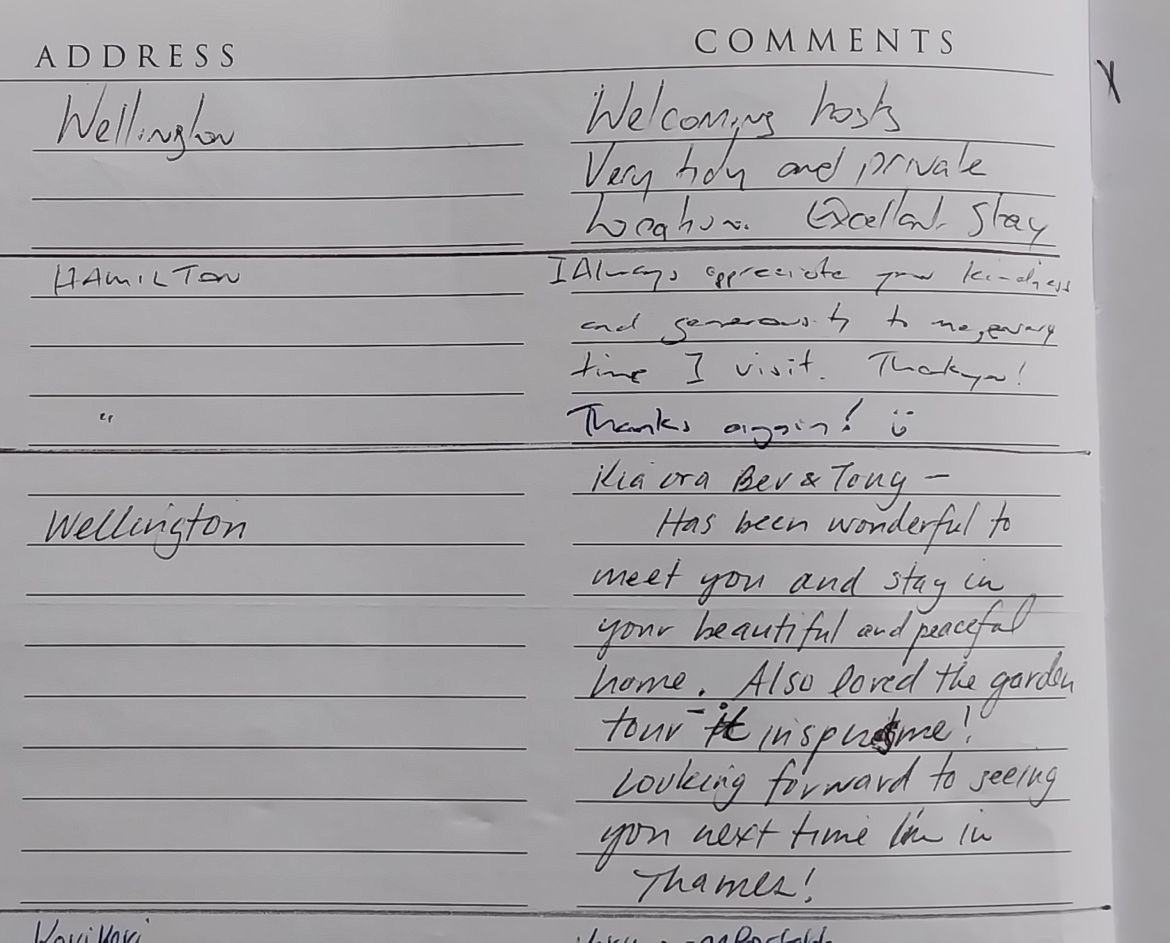 ADDRESS COMMENTS
Wellington Welcoming hosts
Very tidy and private
Location. Excellent Stay
HAMILTON I Always appreciate your kindness
and generousity to me, every
time I visit. Thankyou!
" Thanks again! :)
Kia ora Bev & Tony -
Wellington Has been wonderful to
meet you and stay in
your beautiful and peaceful
home. Also loved the garden
tour - it inspires me!
Looking forward to seeing
you next time I'm in
Thames!
KeriKeri Very comfortable